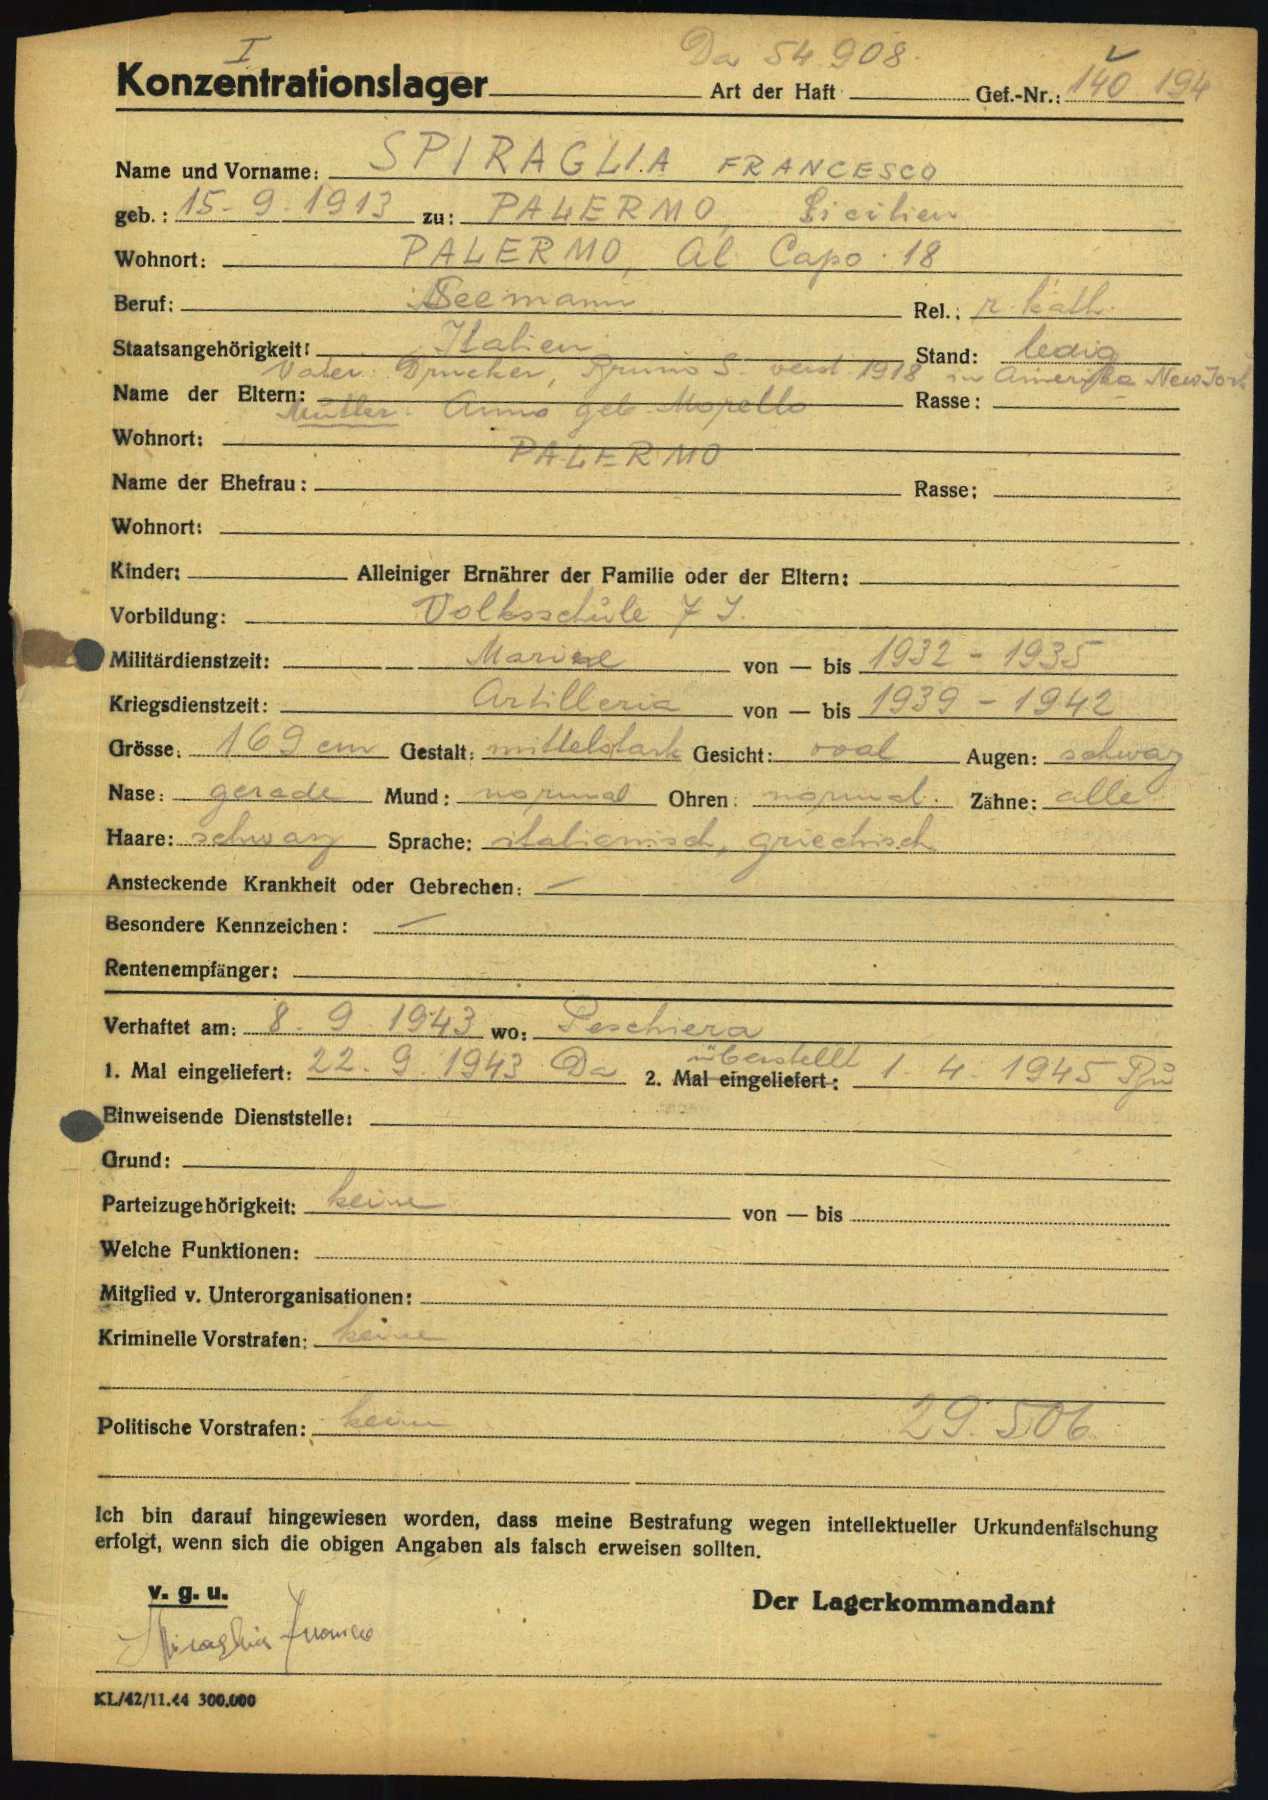 I Da 54 908
Konzentrationslager Art der Haft Gef.-Nr.: 140 194
Name und Vorname: SPIRAGLIA FRANCESCO
geb.: 15. 9. 1913 zu: PALERMO, Sicilien
Wohnort: PALERMO, Al Capo. 18
Beruf: Seemann Rel.: r. kath.
Staatsangehörigkeit: Italien Stand: ledig
Vater: Drucker, Bruno S. verst. 1918 in Amerika New York
Name der Eltern: Rasse:
Mutter: Anna geb. Morello
Wohnort: PALERMO
Name der Ehefrau: Rasse:
Wohnort:
Kinder: Alleiniger Ernährer der Familie oder der Eltern:
Vorbildung: Volksschule 7 J.
Militärdienstzeit: Marine von — bis 1932 - 1935
Kriegsdienstzeit: Artilleria von — bis 1939 - 1942
Grösse: 169 cm Gestalt: mittelstark Gesicht: oval Augen: schwarz
Nase: gerade Mund: normal Ohren: normal. Zähne: alle
Haare: schwarz Sprache: italienisch, griechisch
Ansteckende Krankheit oder Gebrechen: —
Besondere Kennzeichen: —
Rentenempfänger:
Verhaftet am: 8. 9. 1943 wo: Peschiera
überstellt
1. Mal eingeliefert: 22. 9. 1943 Da 2. Mal eingeliefert: 1. 4. 1945
Einweisende Dienststelle:
Grund:
Parteizugehörigkeit: keine von — bis
Welche Funktionen:
Mitglied v. Unterorganisationen:
Kriminelle Vorstrafen: keine
Politische Vorstrafen: keine 29.506
Ich bin darauf hingewiesen worden, dass meine Bestrafung wegen intellektueller Urkundenfälschung
erfolgt, wenn sich die obigen Angaben als falsch erweisen sollten.
v. g. u. Der Lagerkommandant
Spiraglia Francesco
KL/42/11.44 300.000